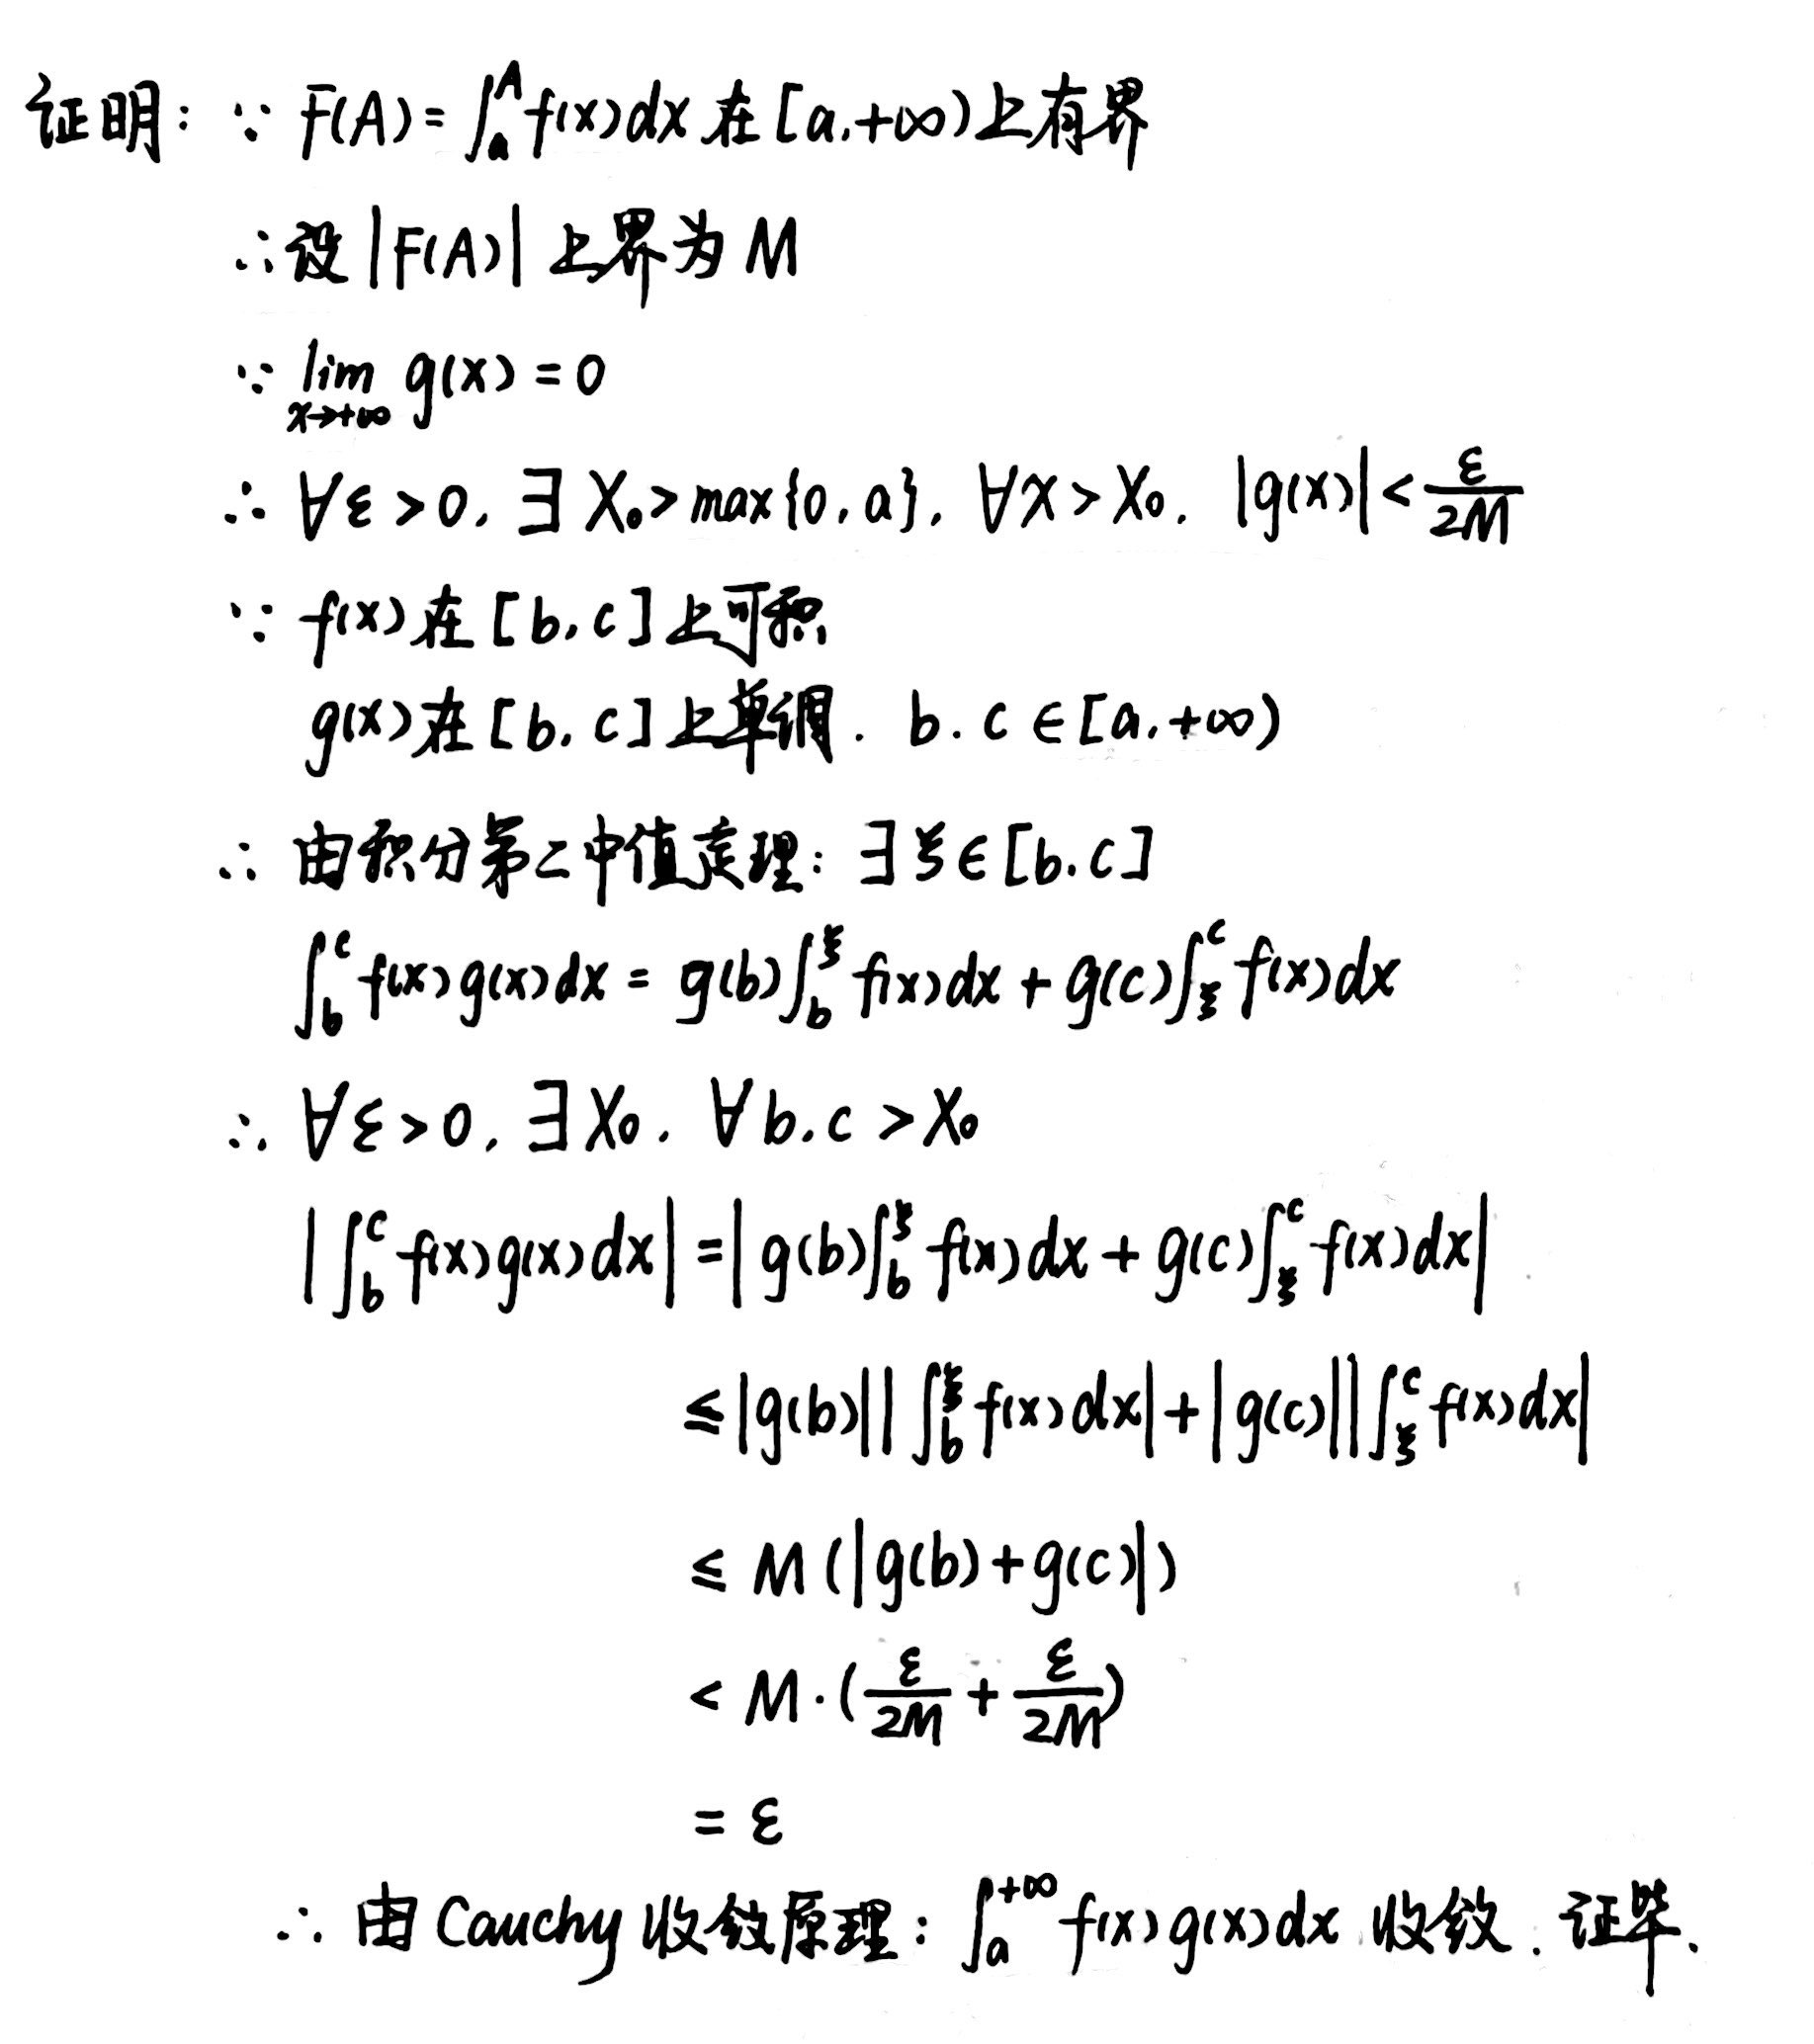 证明: ∵ F(A)=∫ₐᴬ f(x)dx 在 [a,+∞) 上有界
∴ 设 |F(A)| 上界为 M
∵ lim_{x→+∞} g(x)=0
∴ ∀ε>0, ∃X₀>max{0,a}, ∀x>X₀, |g(x)|<\frac{ε}{2M}
∵ f(x) 在 [b,c] 上可积
g(x) 在 [b,c] 上单调. b.c∈[a,+∞)
∴ 由积分第二中值定理: ∃ξ∈[b.c]
∫_b^c f(x)g(x)dx = g(b)∫_b^ξ f(x)dx + g(c)∫_ξ^c f(x)dx
∴ ∀ε>0, ∃X₀. ∀b.c>X₀
|∫_b^c f(x)g(x)dx| = |g(b)∫_b^ξ f(x)dx + g(c)∫_ξ^c f(x)dx|
≤ |g(b)||∫_b^ξ f(x)dx| + |g(c)||∫_ξ^c f(x)dx|
≤ M(|g(b)+g(c)|)
< M·(\frac{ε}{2M}+\frac{ε}{2M})
= ε
∴ 由 Cauchy 收敛原理: ∫_a^{+∞} f(x)g(x)dx 收敛. 证毕.